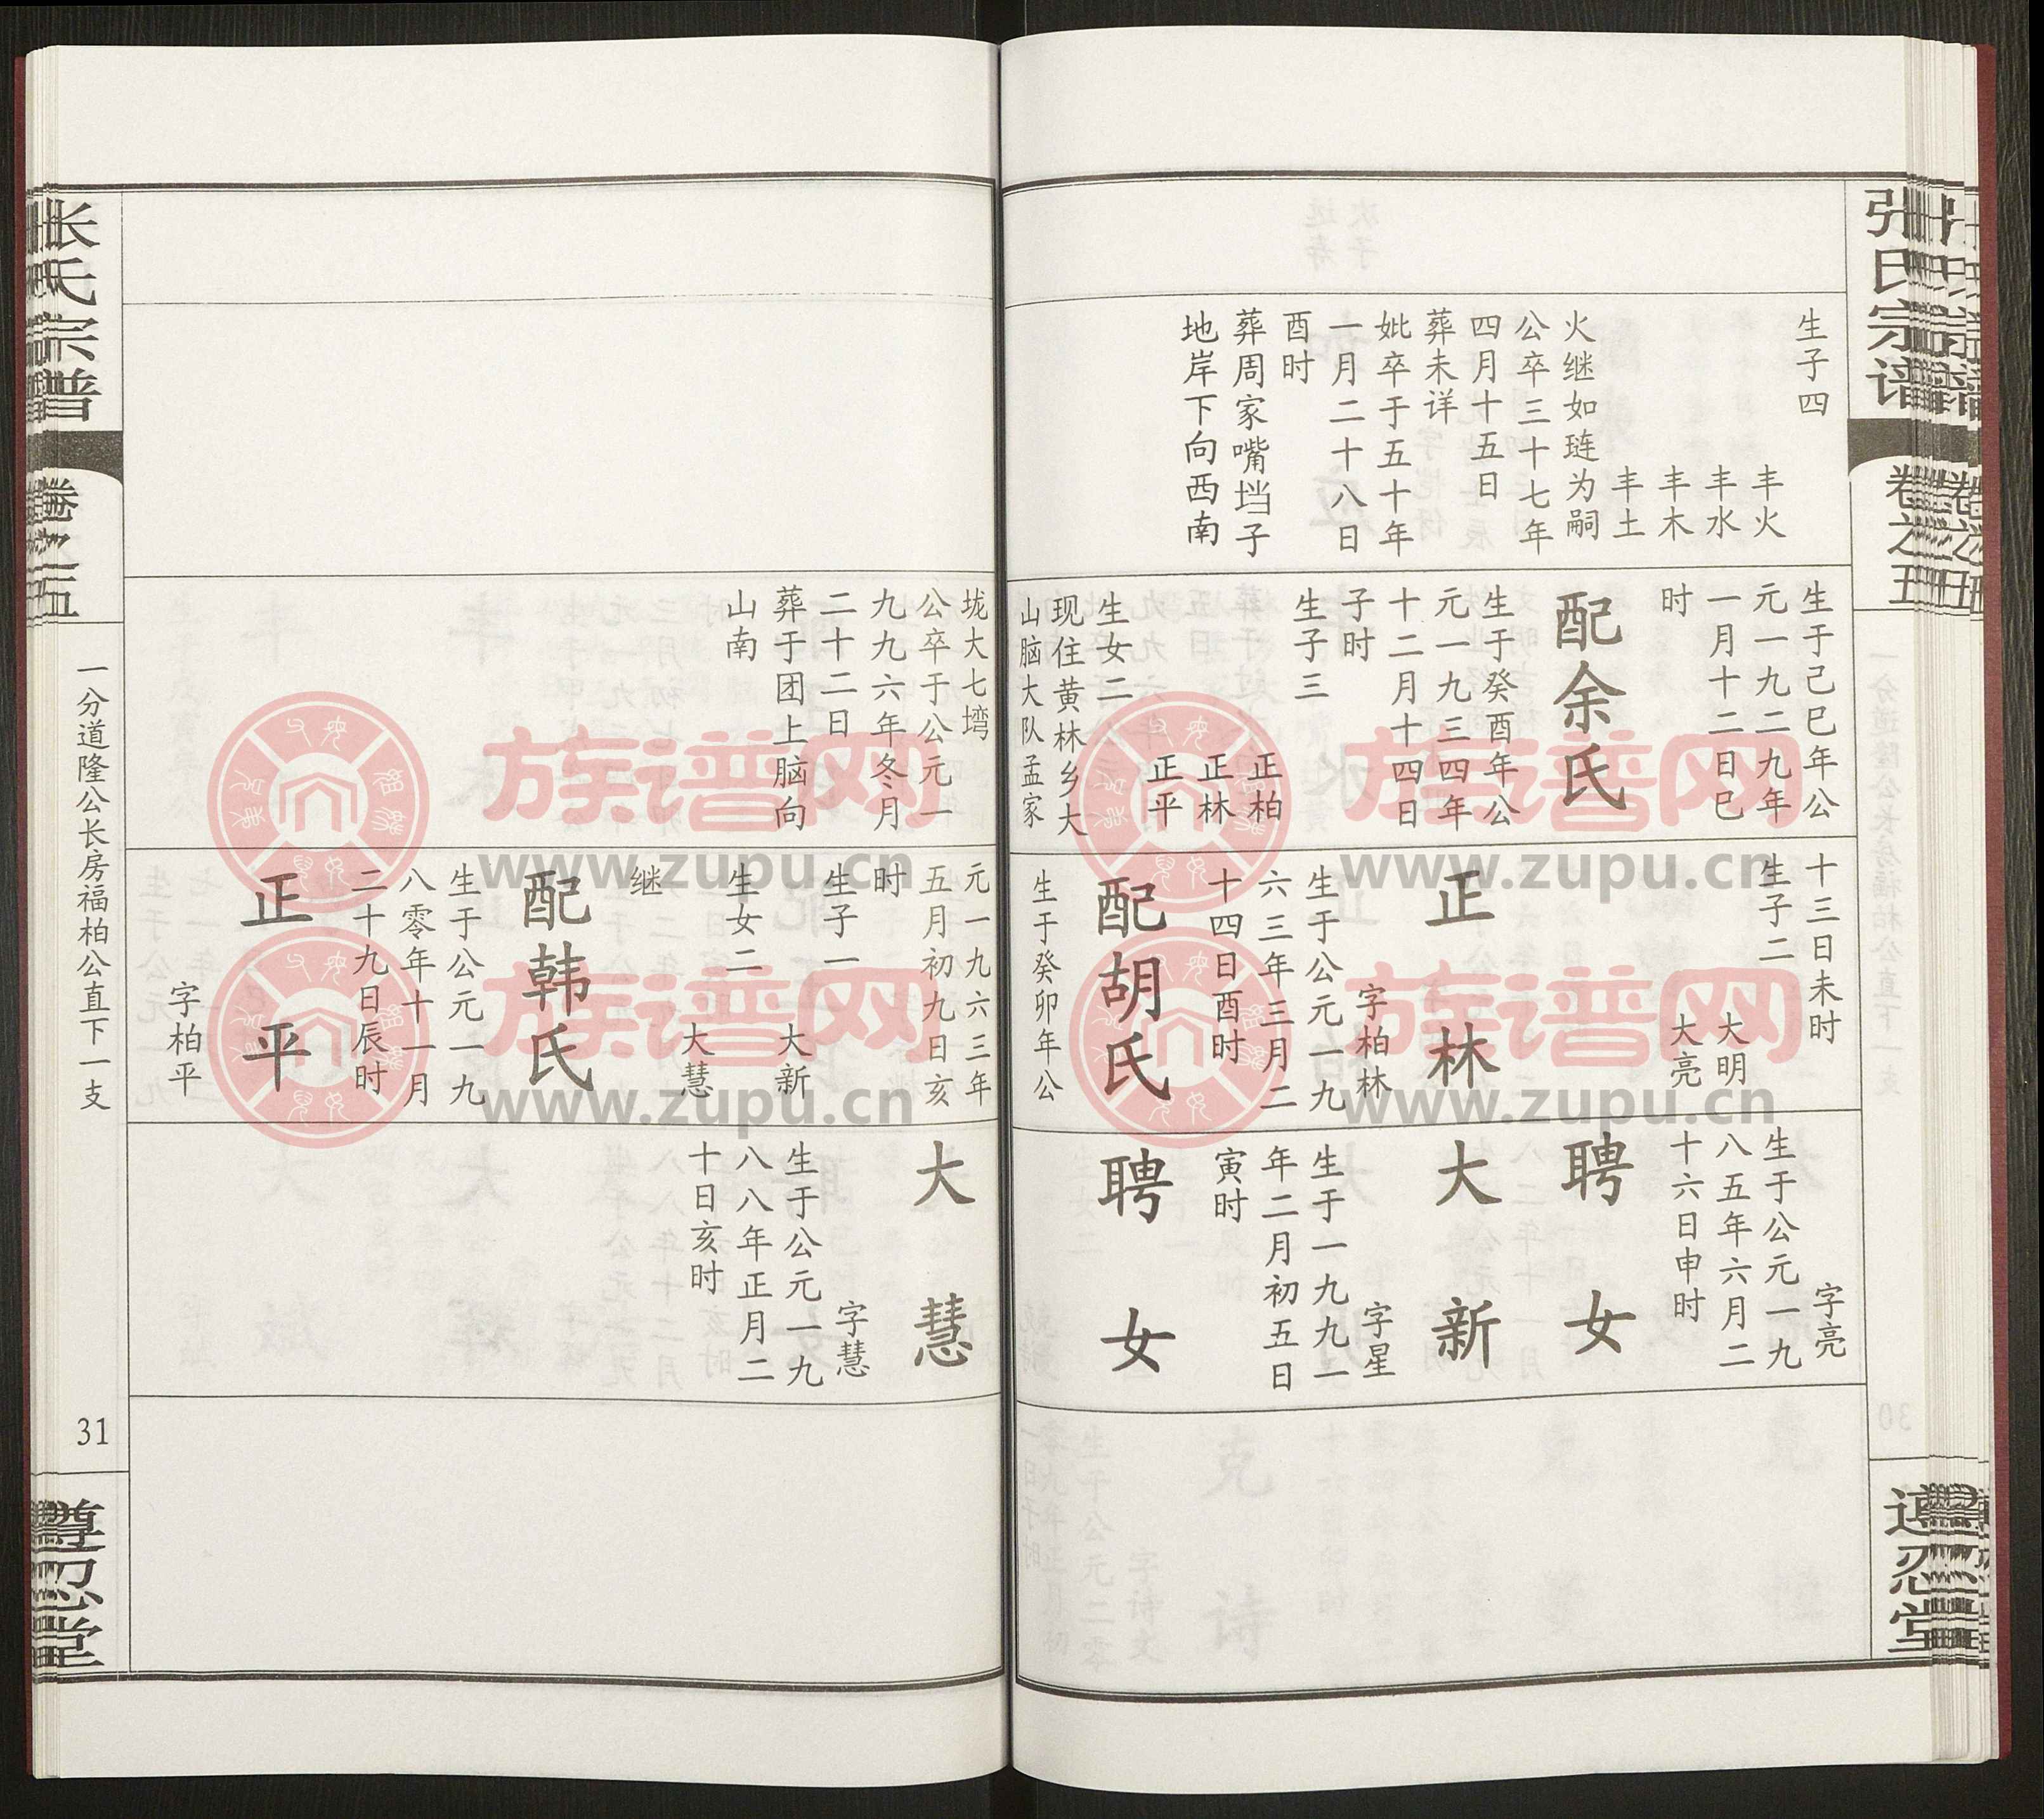 张氏宗谱
卷之五
遵忍堂
生子四
丰火
丰水
丰木
丰土
火继如琏为嗣
公卒三十七年
四月十五日
葬未详
妣卒于五十年
一月二十八日
酉时
葬周家嘴垱子
地岸下向西南
生于己巳年公
元一九二九年
一月十二日巳
时
配余氏
生于癸酉年公
元一九三四年
十二月十四日
子时
生子三
正柏
正林
正平
生女二
现住黄林乡大
山脑大队孟家
十三日未时
生子二
大明
大亮
正林
字柏林
生于公元一九
六三年三月二
十四日酉时
配胡氏
生于癸卯年公
字亮
生于公元一九
八五年六月二
十六日申时
聘女
大新
字星
生于一九九一
年二月初五日
寅时
聘女
垅大七塆
公卒于公元一
九九六年冬月
二十二日
葬于团上脑向
山南
元一九六三年
五月初九日亥
时
生子一
大新
生女二
大慧
继
配韩氏
生于公元一九
八零年十一月
二十九日辰时
正平
字柏平
大慧
字慧
生于公元一九
八八年正月二
十日亥时
张氏宗谱
卷之五
一分道隆公长房福柏公直下一支
31
遵忍堂
族谱网
www.zupu.cn
族谱网
www.zupu.cn
族谱网
www.zupu.cn
族谱网
www.zupu.cn